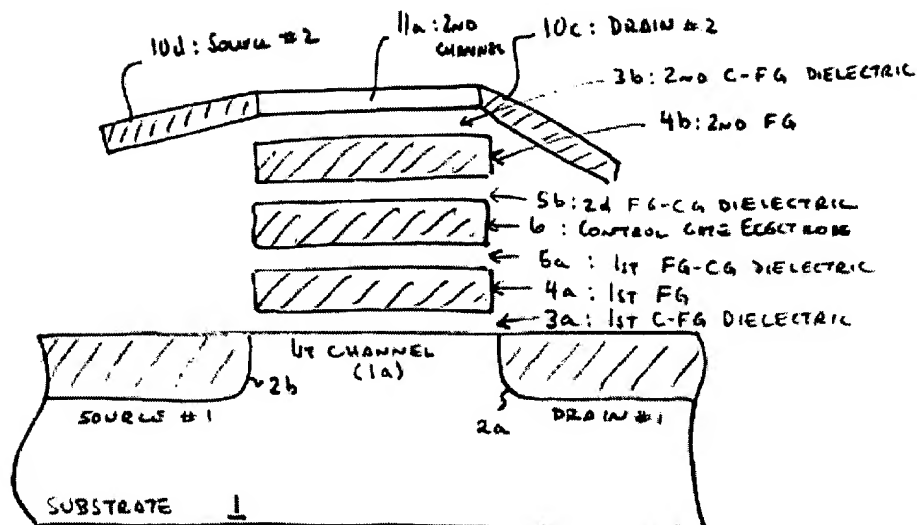 10d: SOURCE #2
11a: 2ND
CHANNEL
10c: DRAIN #2
3b: 2ND C-FG DIELECTRIC
4b: 2ND FG
5b: 2d FG-CG DIELECTRIC
6 : CONTROL GATE ELECTRODE
5a : 1ST FG-CG DIELECTRIC
4a : 1ST FG
3a : 1ST C-FG DIELECTRIC
1ST CHANNEL
(1a)
2b
SOURCE #1
2a
DRAIN #1
SUBSTRATE 1